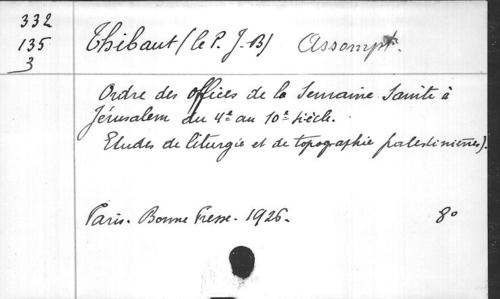 332
135
3
Thibaut (le P. J-B) Assompt.
Ordre des offices de la Semaine Sainte à
Jérusalem du 4e au 10e siècle.
Etudes de liturgie et de topographie palestiniennes).
Paris. Bonne Presse. 1926. 8o